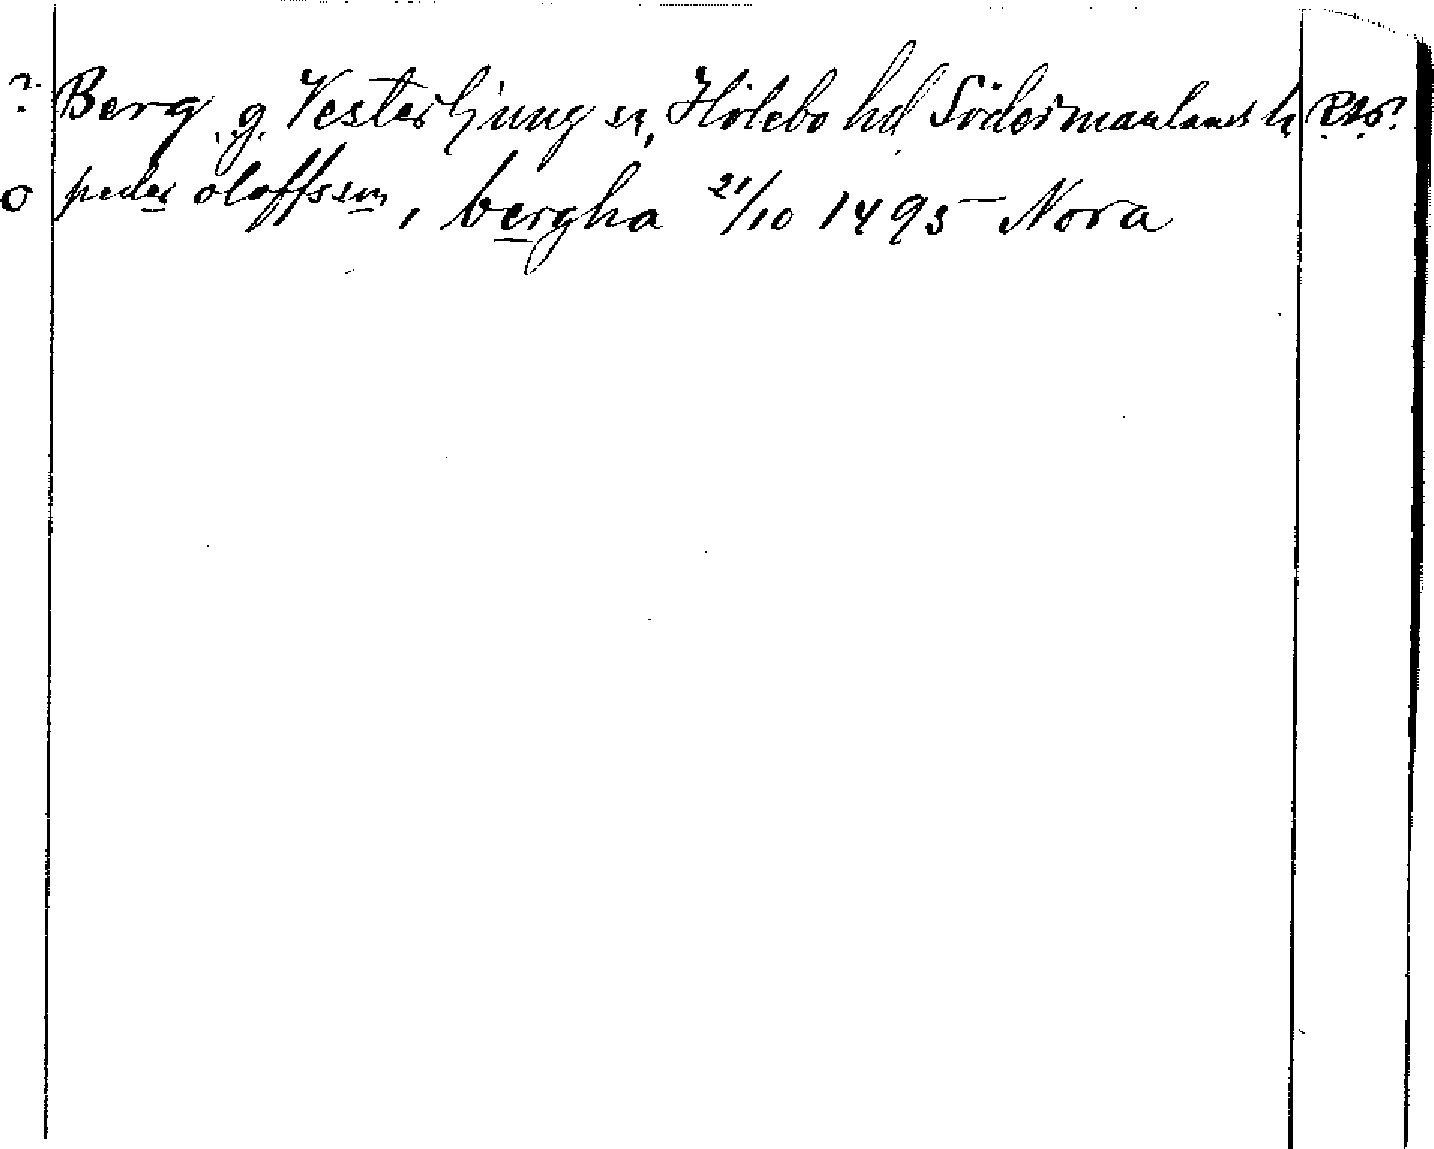 ? Berg g. Vesterljung sn, Hölebo hd Södermanlands l.
o peder oloffsson, i bergha 21/10 1495 Nora